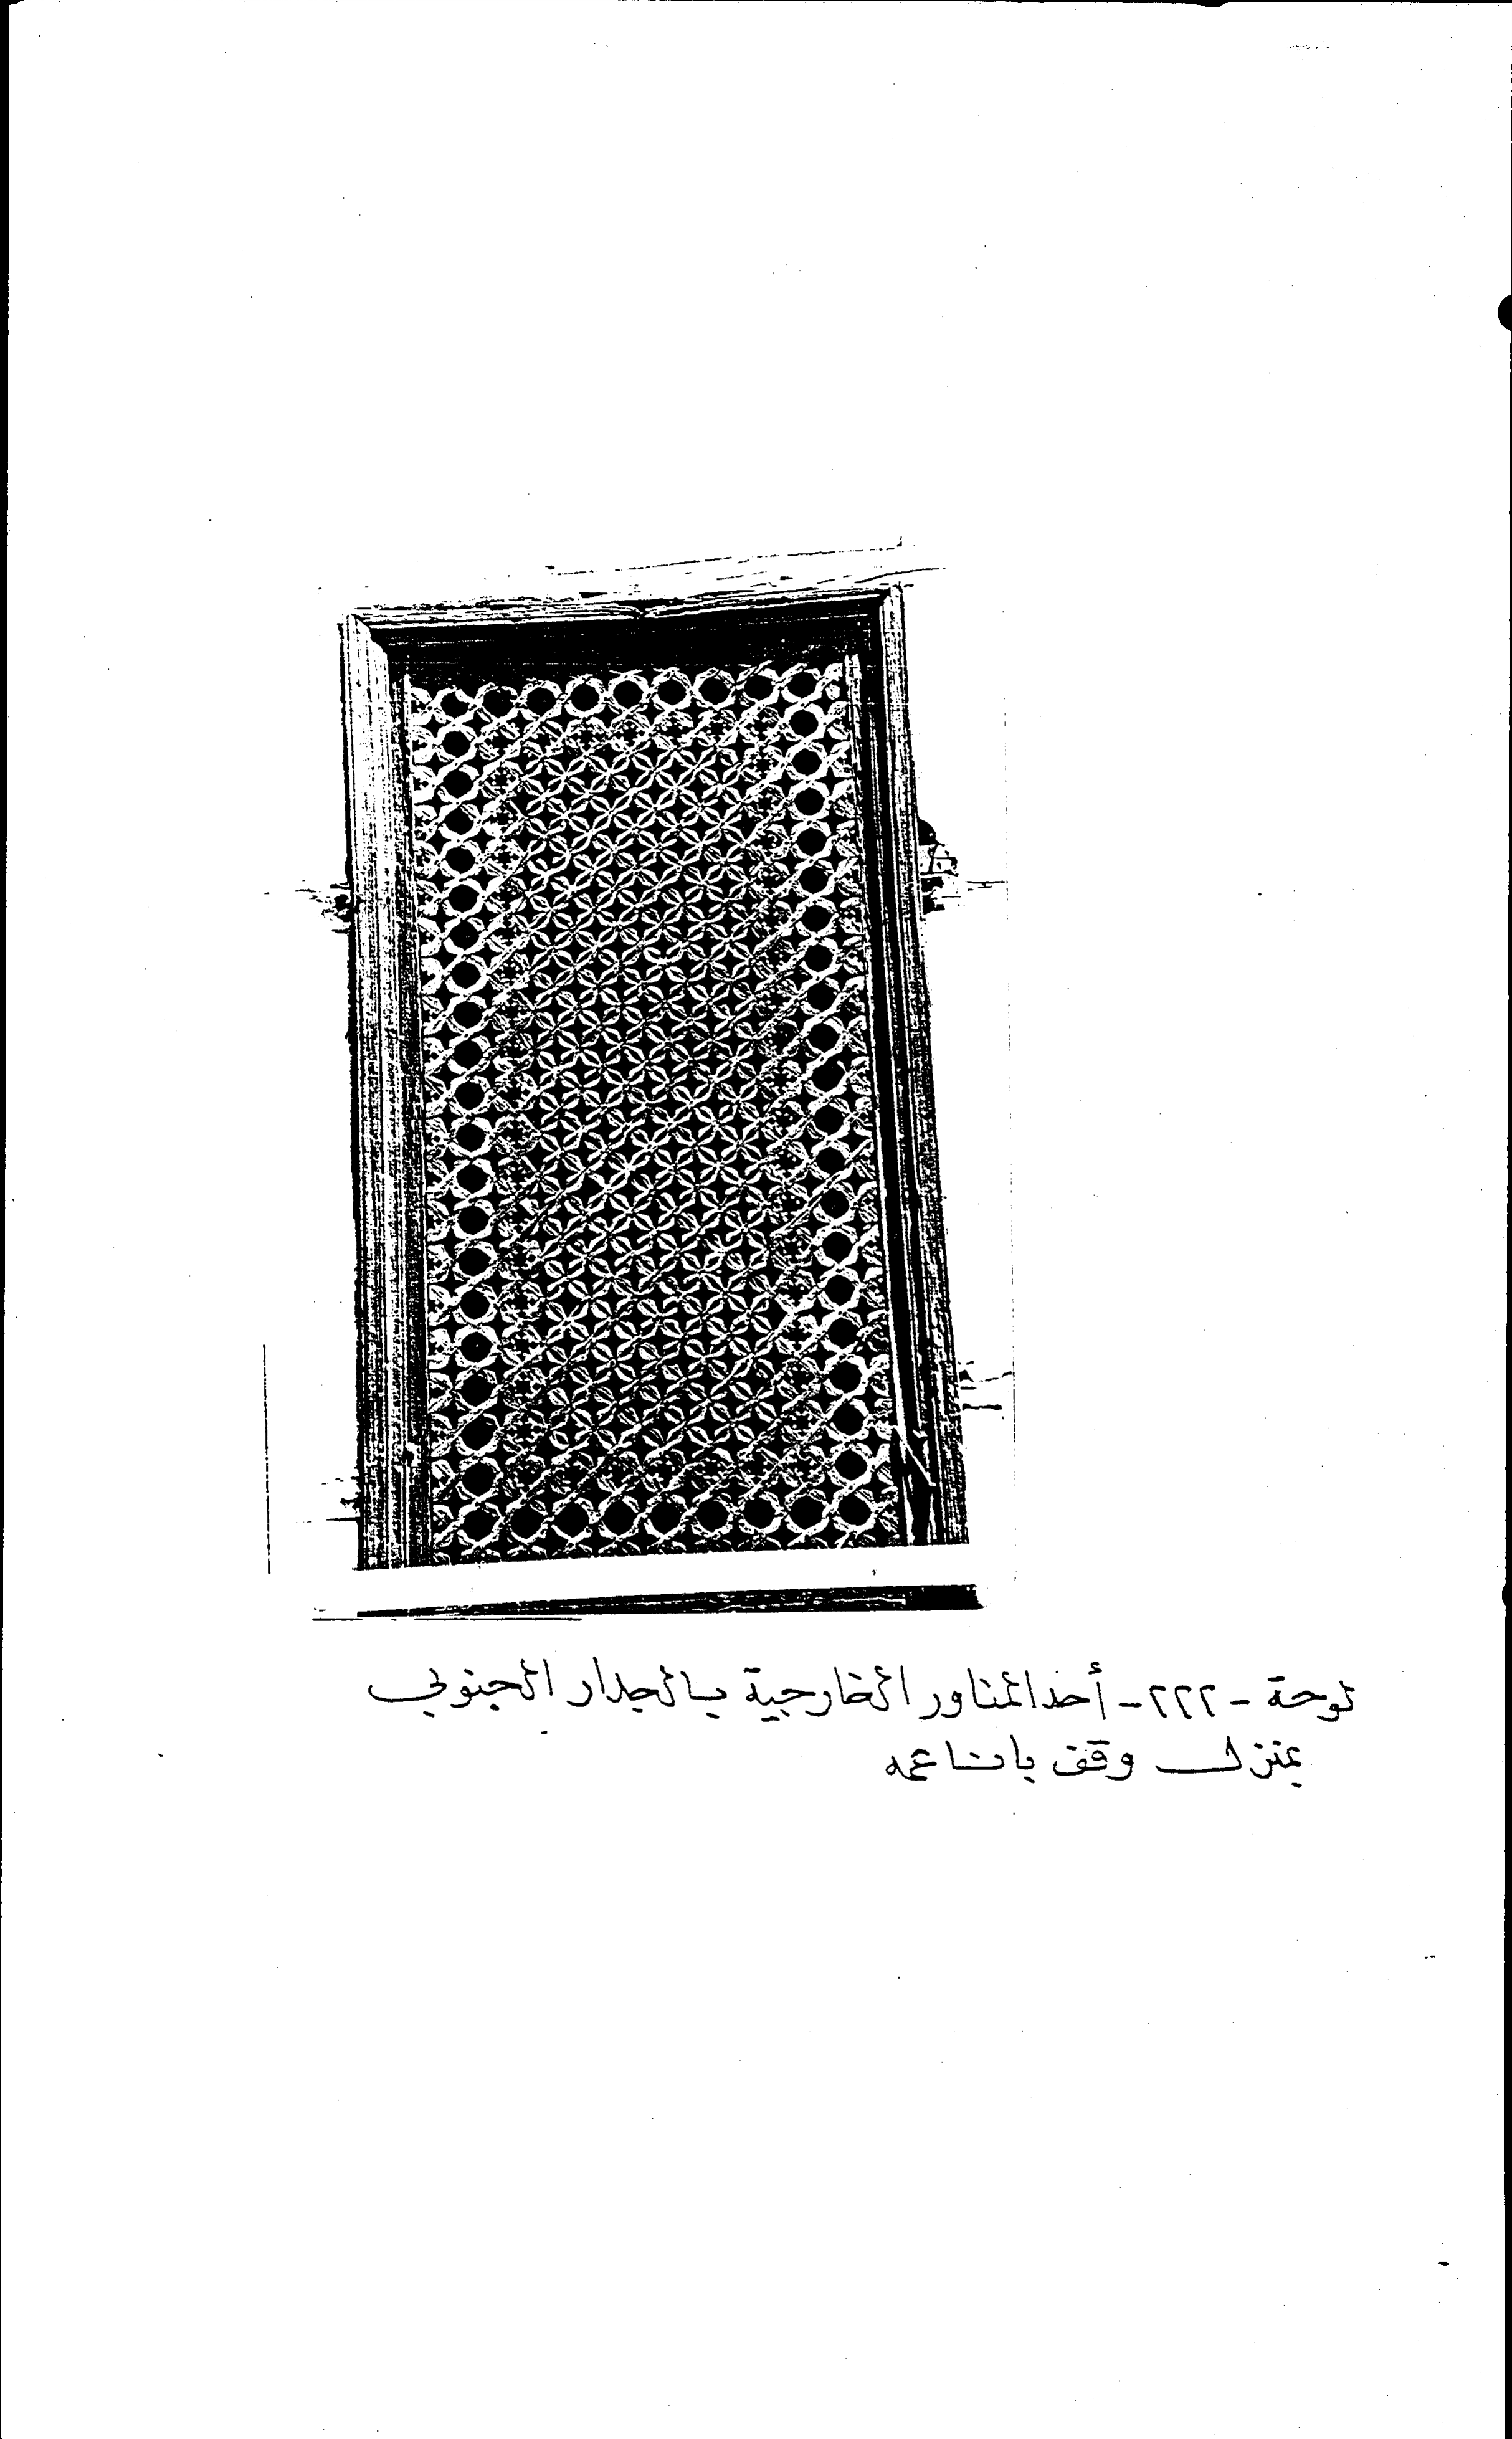 لوحة - ٢٢٢ - أحد المناور الخارجية بالجدار الجنوبي
بمنزل وقف باناعمه